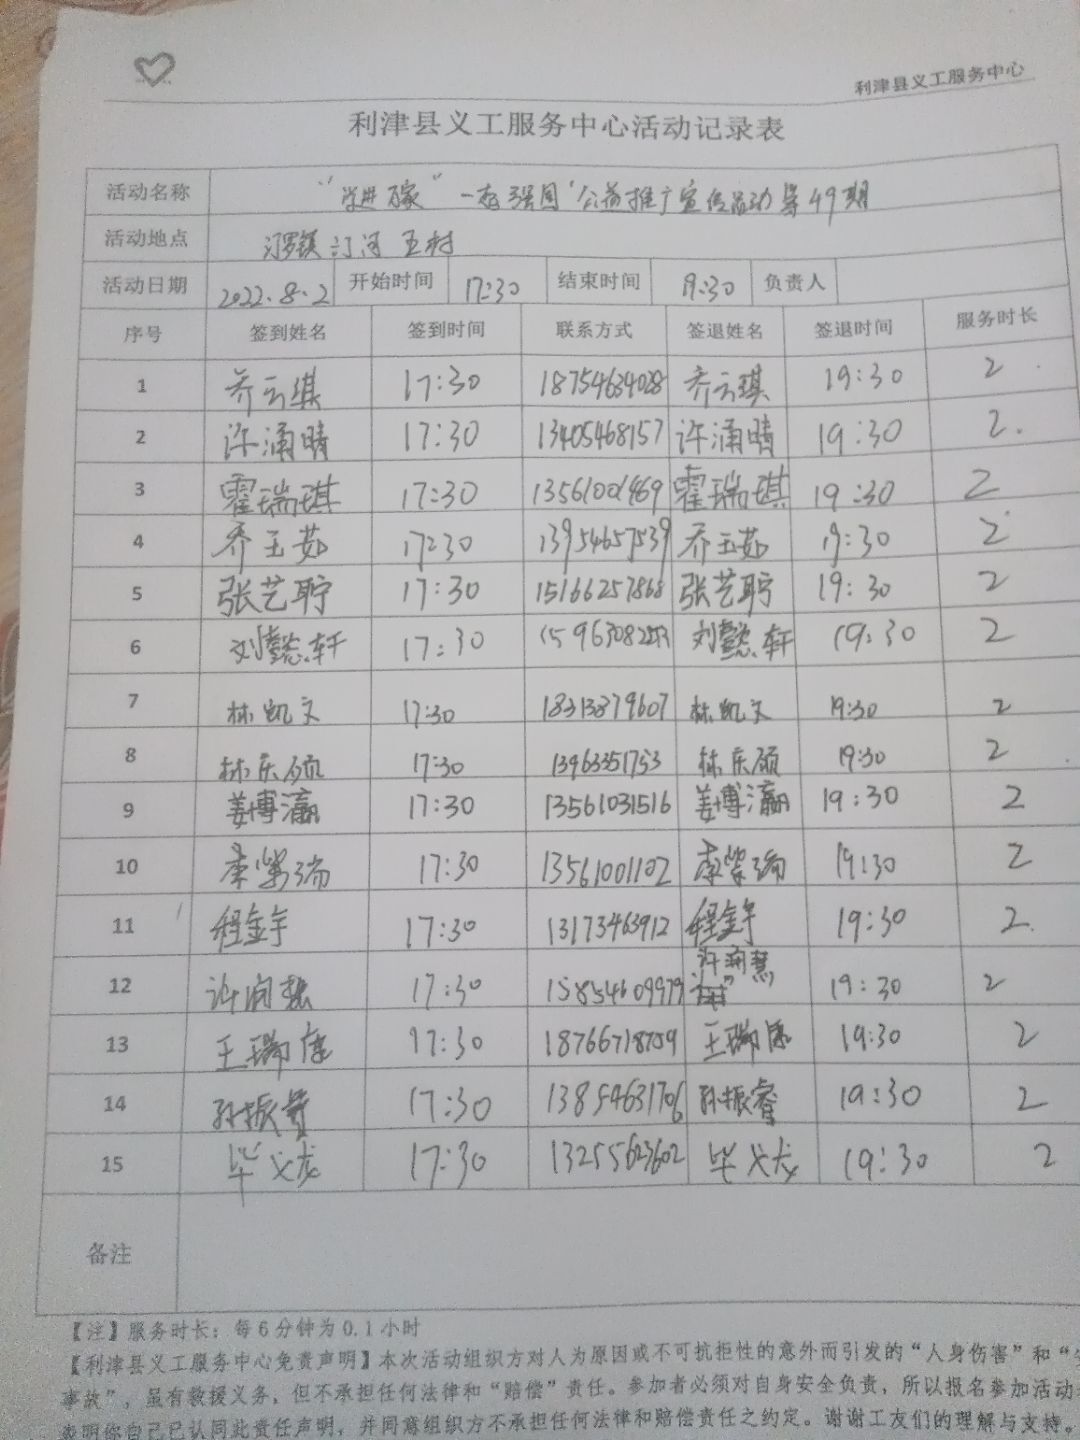 利津县义工服务中心
利津县义工服务中心活动记录表
活动名称 宣传活动 第49期
活动地点 汀罗镇 汀河 五村
活动日期 2022.8.2 开始时间 17:30 结束时间 19:30 负责人
序号 签到姓名 签到时间 联系方式 签退姓名 签退时间 服务时长
1 乔云琪 17:30 18754634028 乔云琪 19:30 2
2 许涌晴 17:30 13405468157 许涌晴 19:30 2.
3 霍瑞琪 17:30 霍瑞琪 19:30 2
4 乔玉茹 17:30 13954657539 乔玉茹 19:30 2
5 张艺聍 17:30 15166257868 张艺聍 19:30 2
6 刘懿轩 17:30 刘懿轩 19:30 2
7 林凯文 17:30 18313879607 林凯文 19:30 2
8 林庆硕 17:30 13963351753 林庆硕 19:30 2
9 姜博瀛 17:30 13561031516 姜博瀛 19:30 2
10 17:30 13561001102 19:30 2
11 程金宇 17:30 13173463912 程金宇 19:30 2.
12 许润慧 17:30 15854609979 许润慧 19:30 2
13 王瑞康 17:30 18766718759 王瑞康 19:30 2
14 孙振睿 17:30 13854631706 孙振睿 19:30 2
15 毕义龙 17:30 13255623602 毕义龙 19:30 2
备注
【注】服务时长：每6分钟为0.1小时
【利津县义工服务中心免责声明】本次活动组织方对人为原因或不可抗拒性的意外而引发的“人身伤害”和“
事故”，虽有救援义务，但不承担任何法律和“赔偿”责任。参加者必须对自身安全负责，所以报名参加活动
表明你自己已认同此责任声明，并同意组织方不承担任何法律和赔偿责任之约定。谢谢工友们的理解与支持。